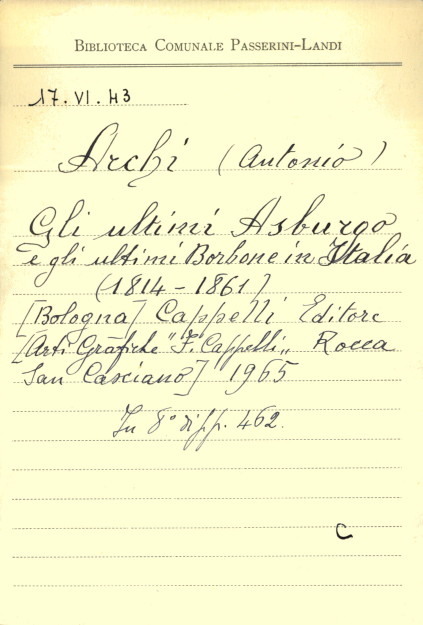 BIBLIOTECA COMUNALE PASSERINI-LANDI
17.VI.43
Archi (Antonio)
Gli ultimi Asburgo
e gli ultimi Borbone in Italia
(1814-1861)
[Bologna] Cappelli Editore
[Arti Grafiche "F. Cappelli„ Rocca
San Casciano] 1965
In 8° di pp. 462.
C